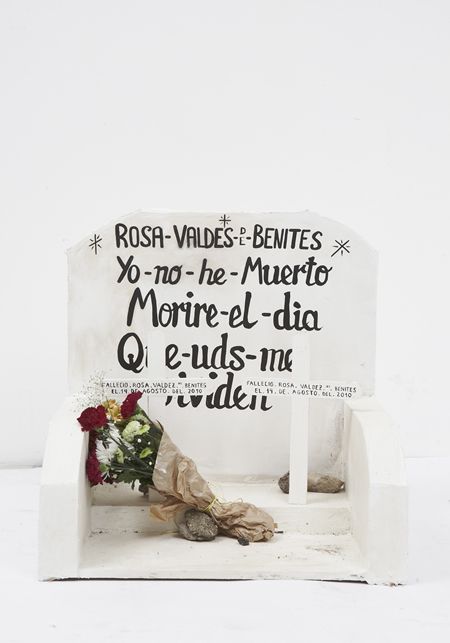 ROSA-VALDES-DE-BENITES
Yo-no-he-Muerto
Morire-el-dia
Que-uds-me
viden
FALLECIO. ROSA. VALDEZ. BENITES
EL. 14. DE. AGOSTO. DEL. 2010
FALLECIO. ROSA. VALDEZ. BENITES
EL. 14. DE. AGOSTO. DEL. 2010